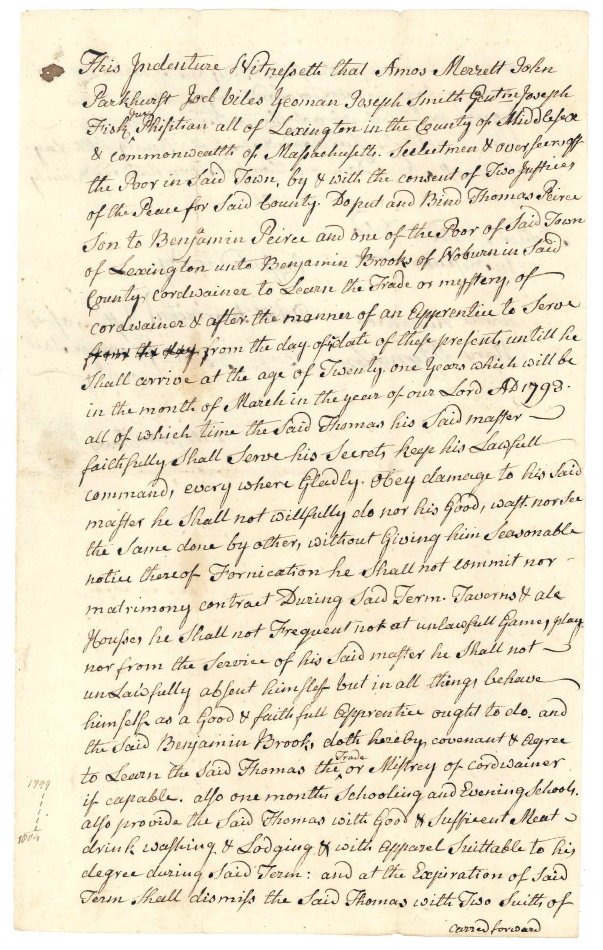 This Indenture Witnesseth that Amos Merrett John
Parkhurst Joel Viles Yeoman Joseph Smith Gentm Joseph
Fisk Junr Phisitian all of Lexington in the County of Middlesex
& commonwealth of Massachusetts. Seelectmen & overseers of
the Poor in Said Town, by & with the consent of Two Justices
of the Peace for Said County. Do put and Bind Thomas Peirce
Son to Benjamin Peirce and one of the Poor of Said Town
of Lexington unto Benjamin Brooks of Woburn in Said
County cordwainer to Learn the Trade or mystery of
cordwainer & after the manner of an Apprentice to Serve
from the day from the day of date of these presents untill he
Shall arrive at the age of Twenty one Years which will be
in the month of March in the year of our Lord AD 1793.
all of which time the Said Thomas his Said master
faithfully Shall Serve his Secrets keep his Lawfull
commands every where Gladly. Obey damage to his Said
master he Shall not willfully do nor his Goods wast. nor See
the Same done by others without Giving him Seasonable
notice thereof Fornication he Shall not commit nor -
matrimony contract During Said Term. Taverns & ale
Houses he Shall not Frequent not at unlawfull Games play
nor from the Service of his Said master he Shall not
unLawfully absent himself but in all things behave
himself as a Good & faithfull Apprentice ought to do. and
the Said Benjamin Brooks doth hereby covenant & Agree
to Learn the Said Thomas the Trade or Mistrey of cordwainer
if capable. also one months Schooling and Evening Schools.
also provide the Said Thomas with Good & Sufficent Meat
drink washing & Lodging & with Apparel Suittable to his
degree during Said Term: and at the Expiration of Said
Term Shall dismiss the Said Thomas with Two Suits of
carred forward